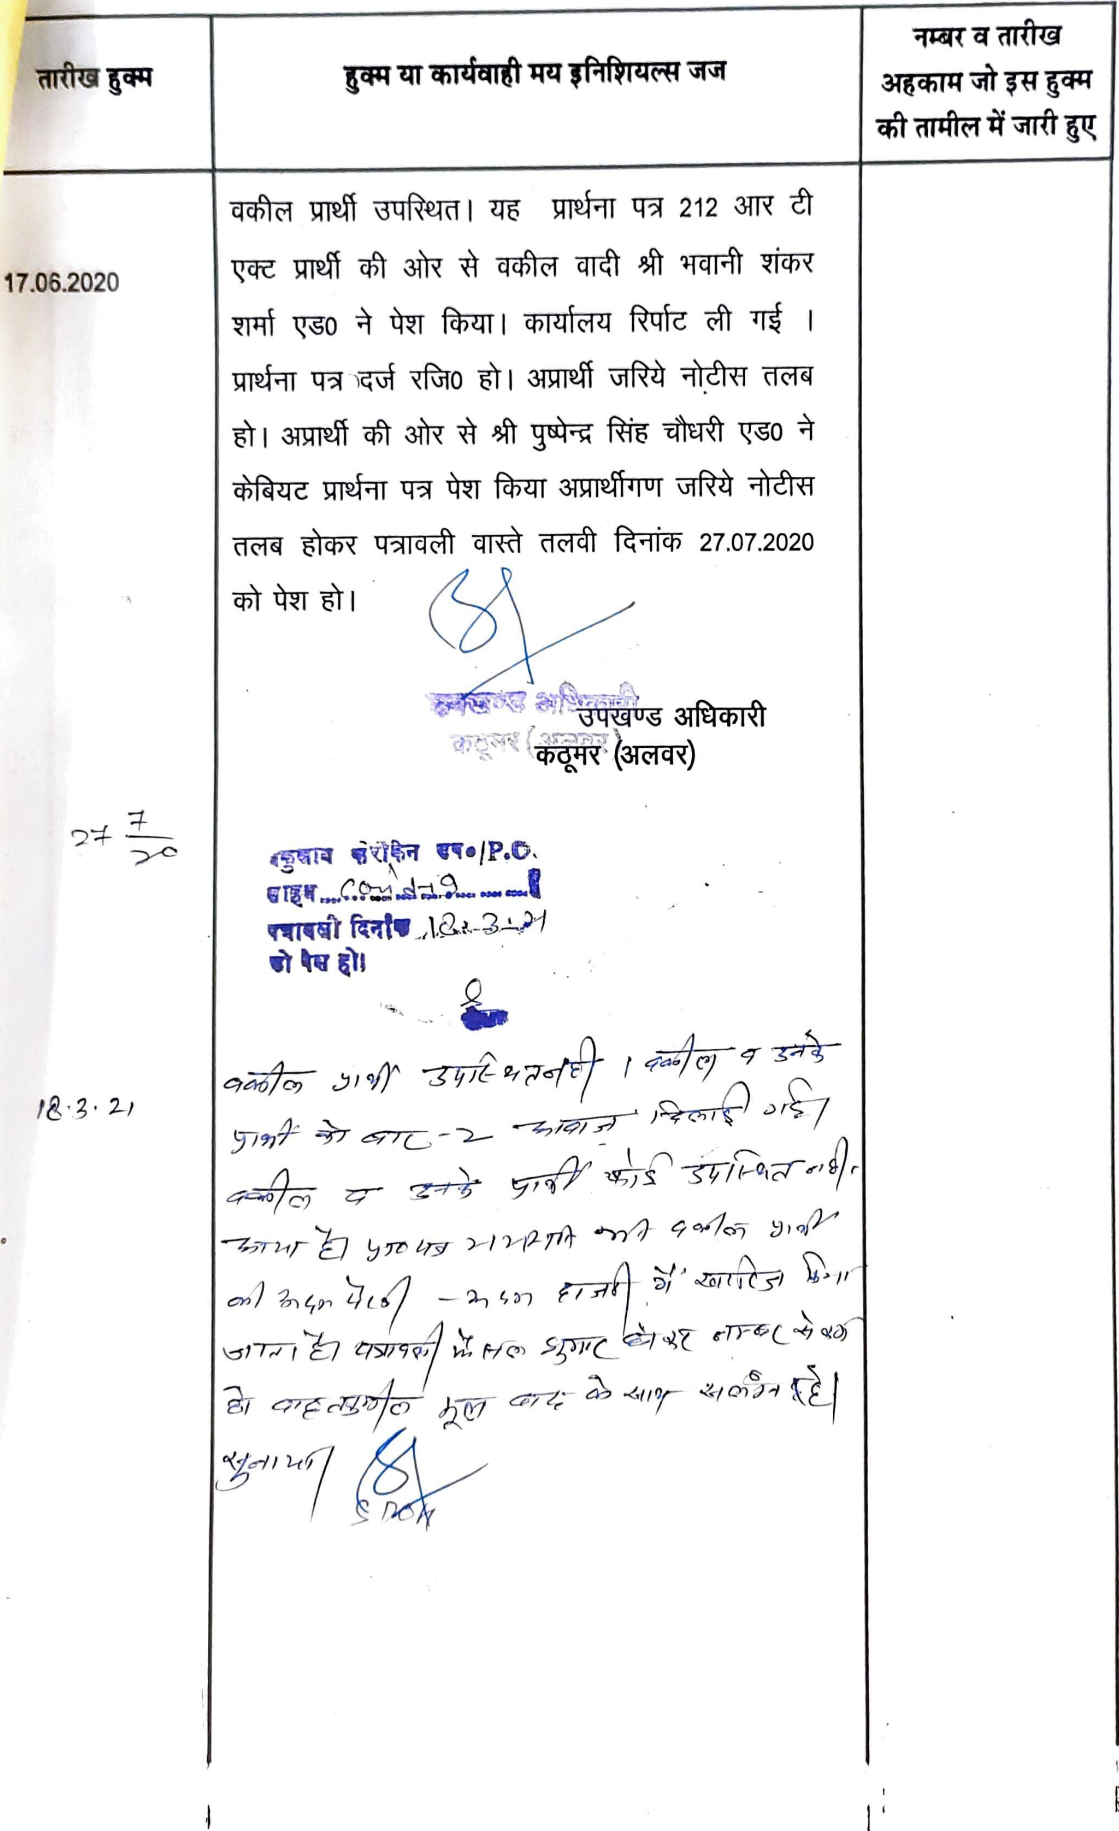 तारीख हुक्म
हुक्म या कार्यवाही मय इनिशियल्स जज
नम्बर व तारीख
अहकाम जो इस हुक्म
की तामील में जारी हुए
17.06.2020
वकील प्रार्थी उपस्थित। यह प्रार्थना पत्र 212 आर टी
एक्ट प्रार्थी की ओर से वकील वादी श्री भवानी शंकर
शर्मा एड0 ने पेश किया। कार्यालय रिर्पाट ली गई ।
प्रार्थना पत्र दर्ज रजि0 हो। अप्रार्थी जरिये नोटीस तलब
हो। अप्रार्थी की ओर से श्री पुष्पेन्द्र सिंह चौधरी एड0 ने
केबियट प्रार्थना पत्र पेश किया अप्रार्थीगण जरिये नोटीस
तलब होकर पत्रावली वास्ते तलवी दिनांक 27.07.2020
को पेश हो।
उपखण्ड अधिकारी
कठूमर (अलवर)
उपखण्ड अधिकारी
कठूमर (अलवर)
27 7/20
P.O.
पत्रावली दिनांक 18-3-21
को पेश हो।
18.3.21
वकील प्रार्थी उपस्थित नही । वकील व उनके
प्रार्थी को बार-2 आवाज दिलाई गई।
वकील व उनके प्रार्थी कोई उपस्थित नही
आया है।
की अदम पैरवी - अदम हाजरी में खारिज किया
जाता है। पत्रावली फैसल शुमार होकर नम्बर से कम
हो मूल वाद के साथ संलग्न रहे।
सुनाया।